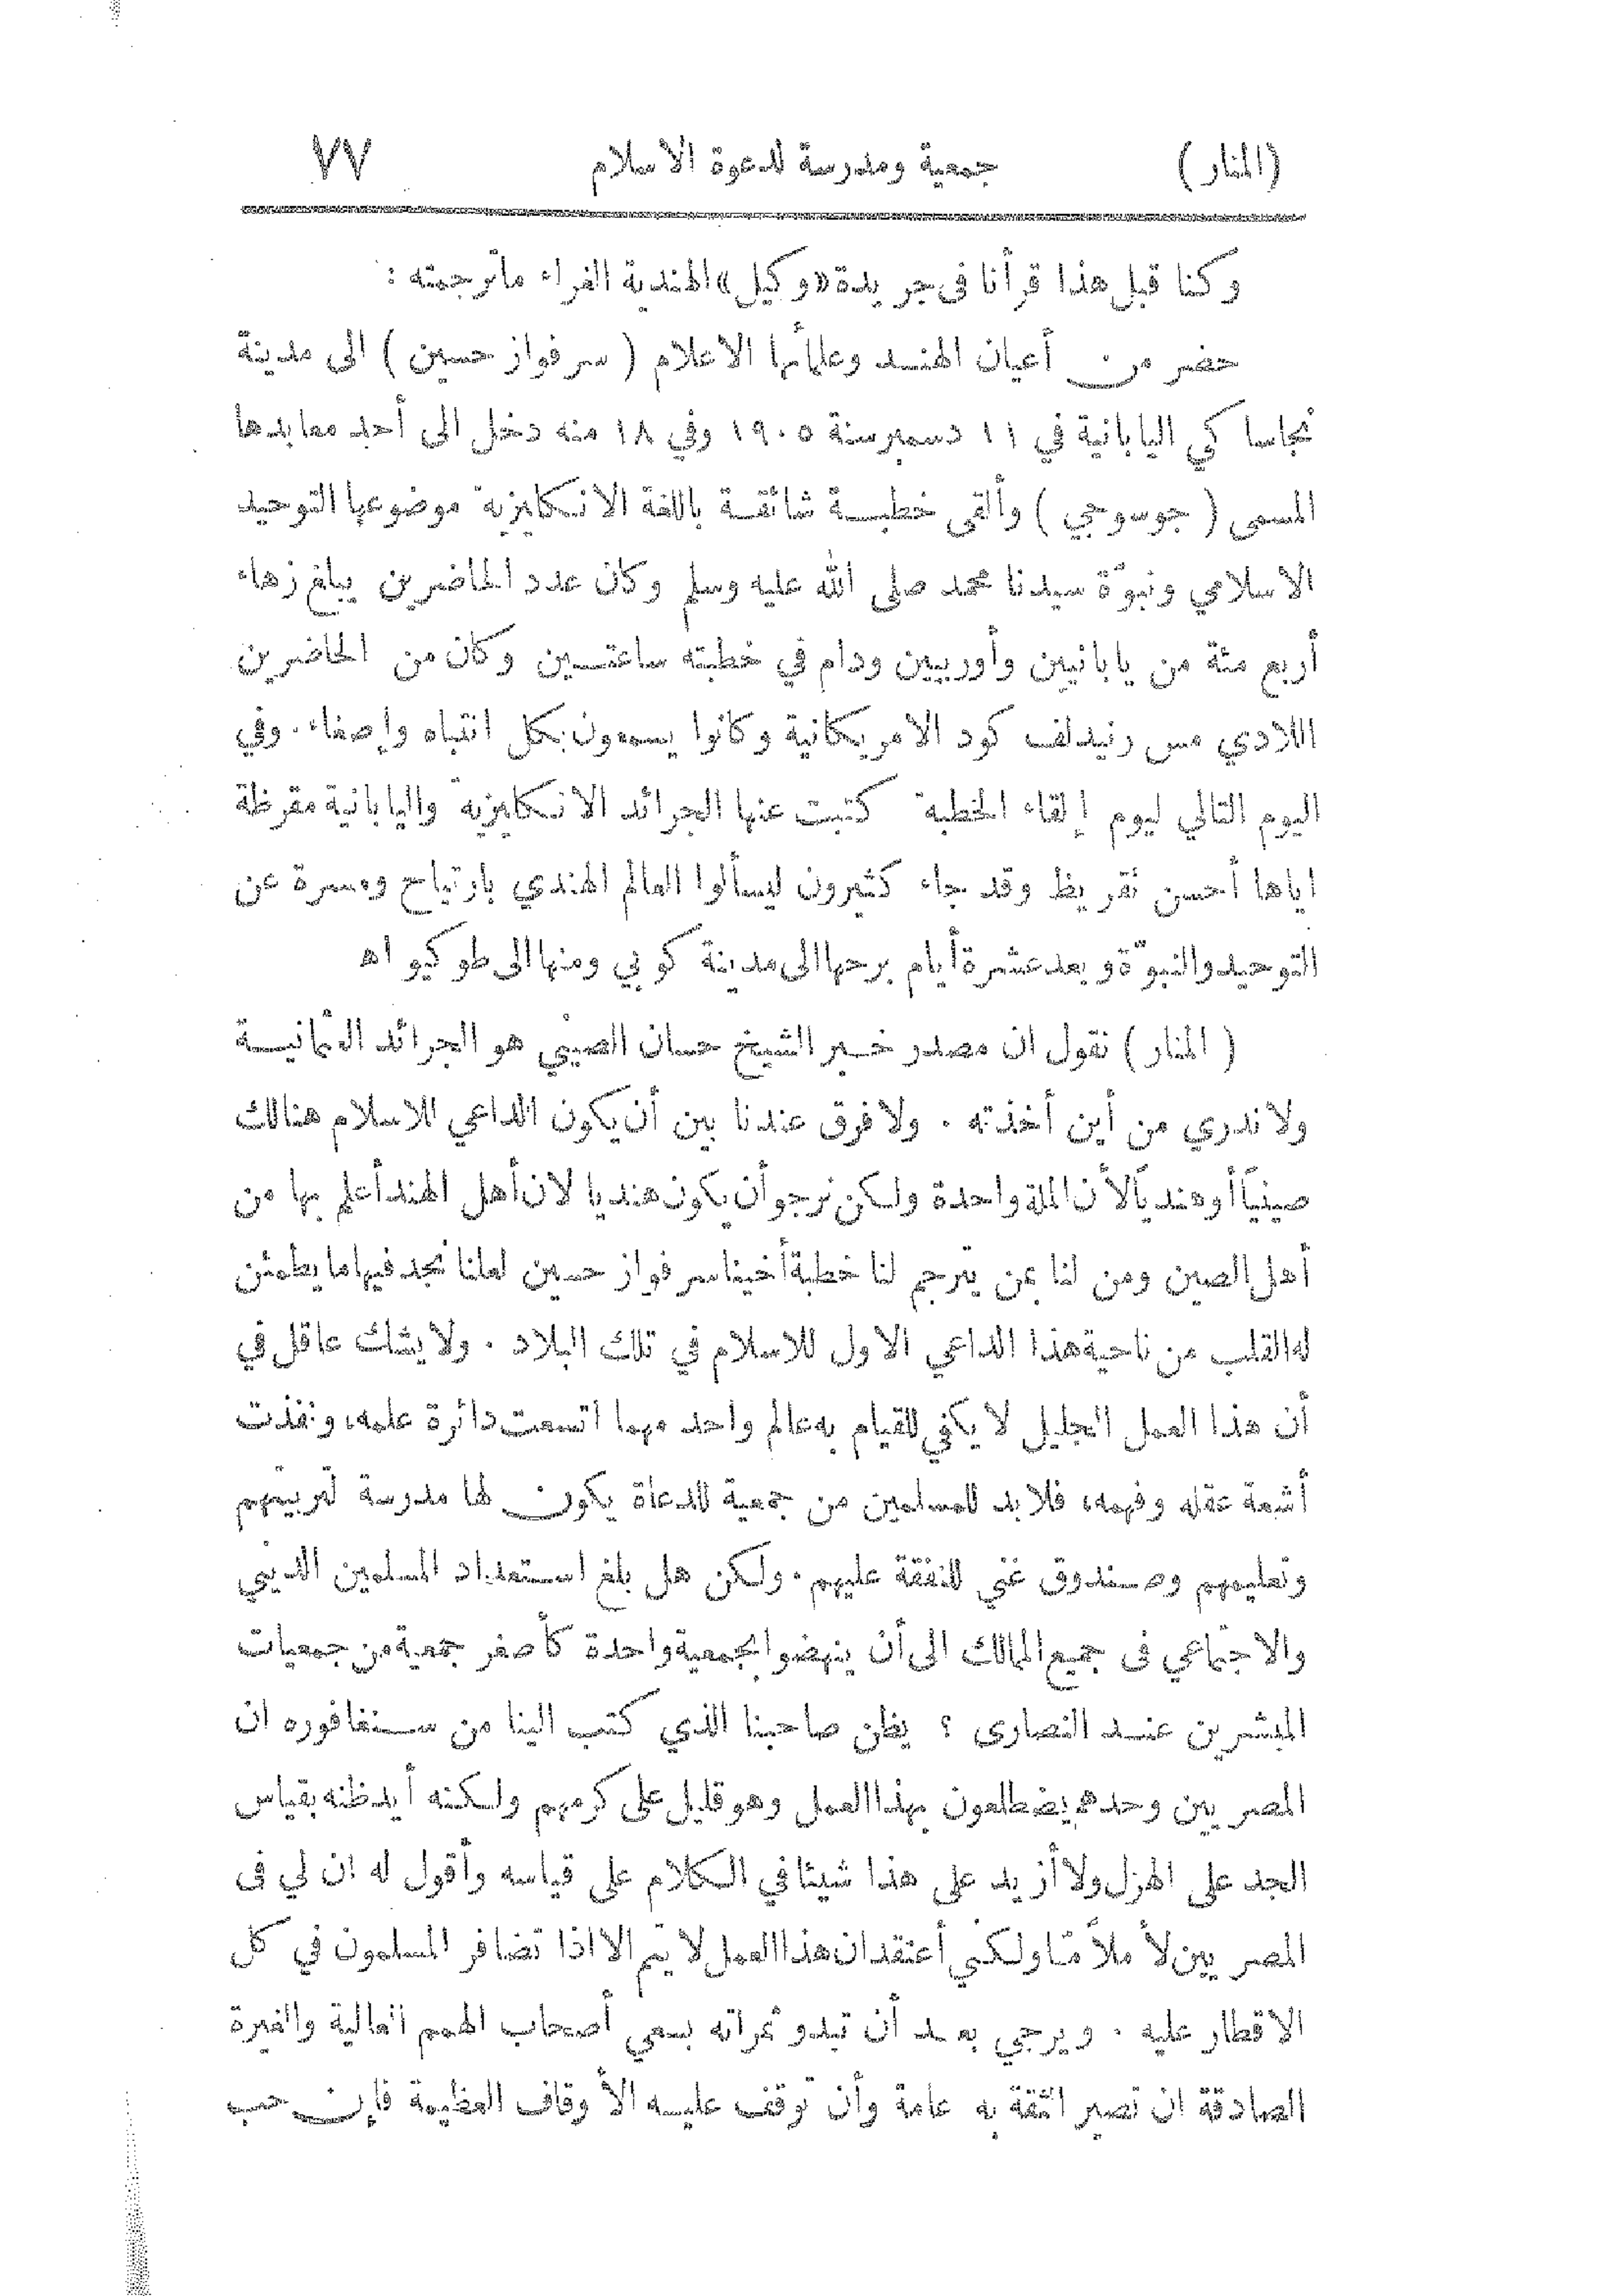 (المنار) جمعية ومدرسة للدعوة الاسلام ٧٧
وكنا قبل هذا قرأنا فى جريدة «وكيل» الهندية الغراء ماترجمته :
حضر من أعيان الهند وعلمائها الاعلام ( سرفواز حسين ) الى مدينة
نجاساكي اليابانية في ١١ دسمبر سنة ١٩٠٥ وفي ١٨ منه دخل الى أحد معابدها
المسمى ( جوسوجي ) وألقى خطبة شائقة باللغة الانكليزية موضوعها التوحيد
الاسلامي ونبوّة سيدنا محمد صلى الله عليه وسلم وكان عدد الحاضرين يبلغ زهاء
أربع مئة من يابانيين وأوربيين ودام في خطبته ساعتين وكان من الحاضرين
اللادي مس رنيدلف كود الامريكانية وكانوا يسمعون بكل انتباه وإصغاء. وفي
اليوم التالي ليوم إلقاء الخطبة كتبت عنها الجرائد الانكليزية واليابانية مقرظة
اياها أحسن تقريظ وقد جاء كثيرون ليسألوا العالم الهندي بارتياح ومسرة عن
التوحيد والنبوّة وبعد عشرة أيام برحها الى مدينة كوبي ومنها الى طوكيو اه
( المنار ) نقول ان مصدر خبر الشيخ حسان الصيني هو الجرائد العثمانية
ولا ندري من أين أخذته . ولا فرق عندنا بين أن يكون الداعي للاسلام هنالك
صينيًا أو هنديًا لأن الملة واحدة ولكن نرجو أن يكون هنديا لان أهل الهند أعلم بها من
أهل الصين ومن لنا بمن يترجم لنا خطبة أخينا سرفواز حسين لعلنا نجد فيها ما يطمئن
له القلب من ناحية هذا الداعي الاول للاسلام في تلك البلاد . ولا يشك عاقل في
أن هذا العمل الجليل لا يكفي للقيام به عالم واحد مهما اتسعت دائرة علمه، ونفذت
أشعة عقله وفهمه، فلا بد للمسلمين من جمعية للدعاة يكون لها مدرسة لتربيتهم
وتعليمهم وصندوق غني للنفقة عليهم. ولكن هل بلغ استعداد المسلمين الديني
والاجتماعي فى جميع الممالك الى أن ينهضوا بجمعية واحدة كأصغر جمعية من جمعيات
المبشرين عند النصارى ؟ يظن صاحبنا الذي كتب الينا من سنغافوره ان
المصريين وحدهم يضطلعون بهذا العمل وهو قليل على كرمهم ولكنه أيد ظنه بقياس
الجد على الهزل ولا أزيد على هذا شيئا في الكلام على قياسه وأقول له ان لي فى
المصريين لأملاً مّا ولكني أعتقد ان هذا العمل لا يتم الا اذا تضافر المسلمون في كل
الاقطار عليه . ويرجى بعد أن تبدو ثمراته بسعي أصحاب الهمم العالية والغيرة
الصادقة ان تصير الثقة به عامة وأن توقف عليه الأوقاف العظيمة فإن حب